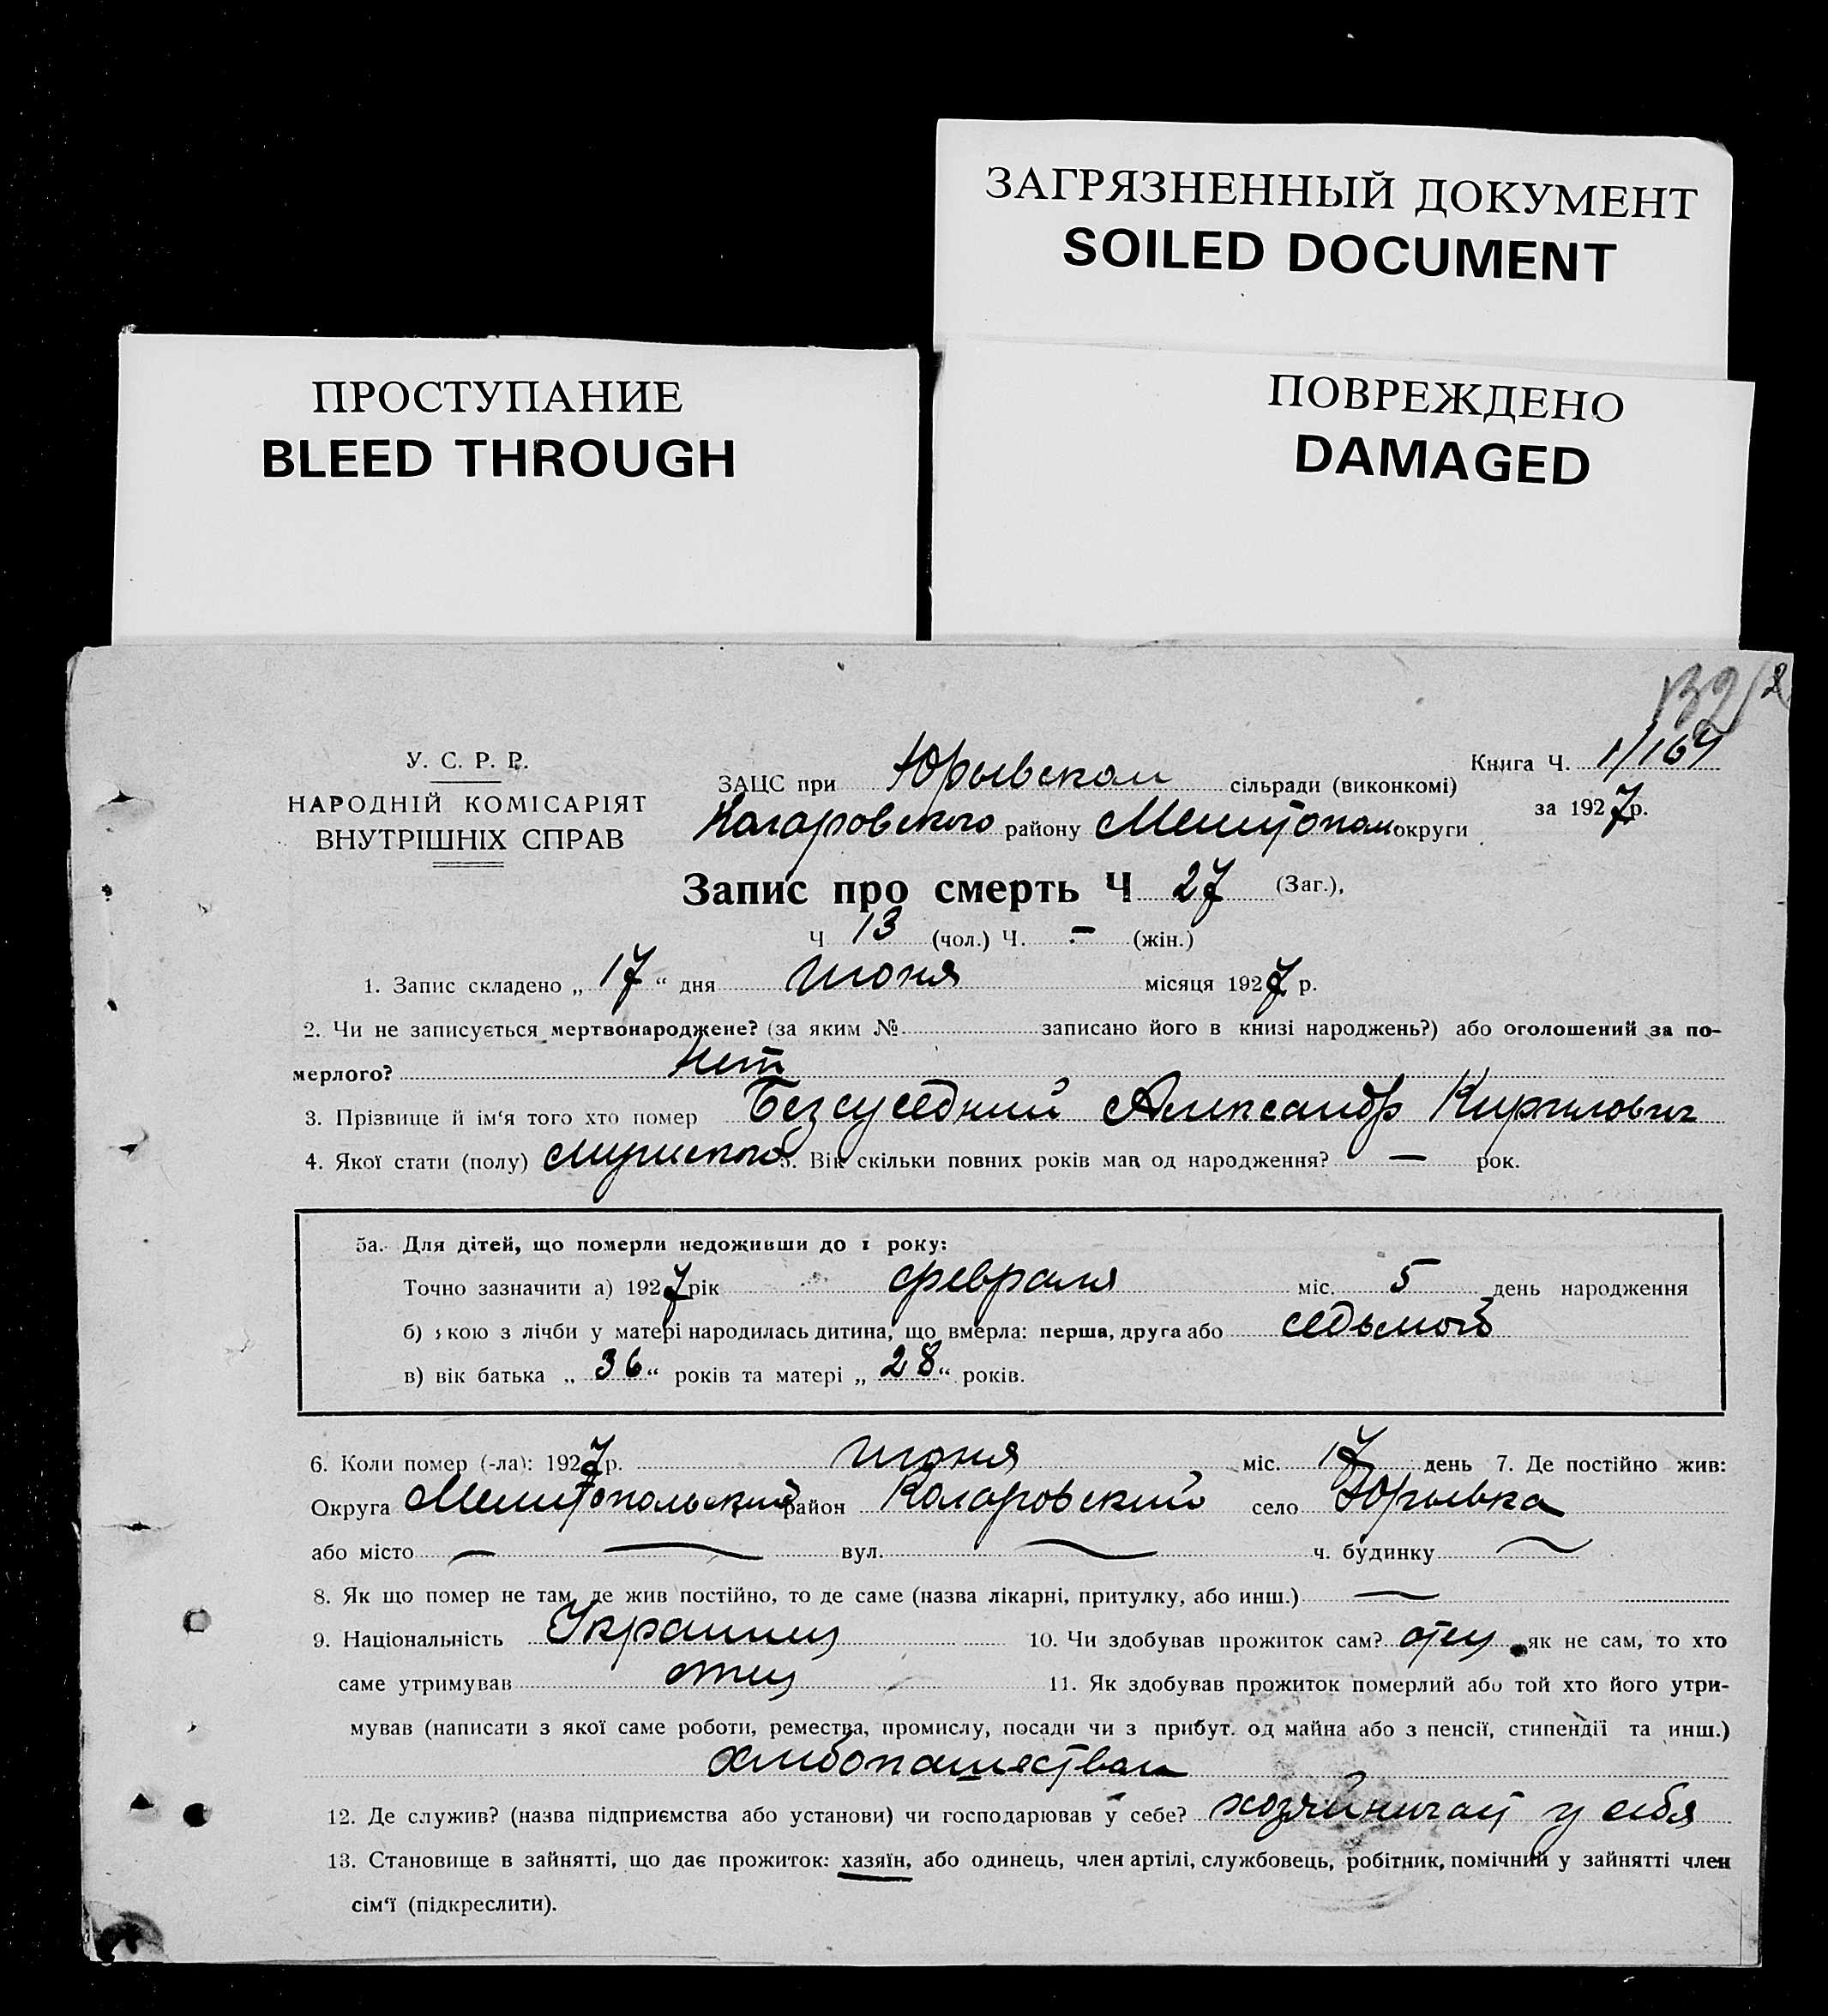 ЗАГРЯЗНЕННЫЙ ДОКУМЕНТ
SOILED DOCUMENT
ПРОСТУПАНИЕ
BLEED THROUGH
ПОВРЕЖДЕНО
DAMAGED
132 2
У. С. Р. Р.
НАРОДНІЙ КОМІСАРІЯТ
ВНУТРІШНІХ СПРАВ
ЗАЦС при Юрьевском сільради (виконкомі)
Коларовского району Мелитопол округи
Книга Ч. 1/164
за 1927 р.
Запис про смерть Ч 27 (Заг.),
Ч 13 (чол.) Ч. - (жін.)
1. Запис складено „ 17 “ дня июня місяця 1927 р.
2. Чи не записується мертвонароджене? (за яким № записано його в книзі народжень?) або оголошений за по-
мерлого? нет
3. Прізвище й ім'я того хто помер Безсуседний Александр Кирилович
4. Якої стати (полу) 5. Вік скільки повних років мав од народження? — рок.
5а. Для дітей, що померли недоживши до 1 року:
Точно зазначити а) 1927 рік февраля міс. 5 день народження
б) якою з лічби у матері народилась дитина, що вмерла: перша, друга або седьмой
в) вік батька „ 36 “ років та матері „ 28 “ років.
6. Коли помер (-ла): 1927 р. июня міс. 17 день 7. Де постійно жив:
Округа Мелитопольский район Коларовский село Юрьевка
або місто — вул. — ч. будинку —
8. Як що помер не там, де жив постійно, то де саме (назва лікарні, притулку, або инш.) —
9. Національність Украинец 10. Чи здобував прожиток сам? отец як не сам, то хто
саме утримував отец 11. Як здобував прожиток померлий або той хто його утри-
мував (написати з якої саме роботи, ремества, промислу, посади чи з прибут. од майна або з пенсії, стипендії та инш.)
хлибопашеством
12. Де служив? (назва підприємства або установи) чи господарював у себе? хозяйничает у себя
13. Становище в зайнятті, що дає прожиток: хазяїн, або одинець, член артілі, службовець, робітник, помічний у зайнятті член
сім'ї (підкреслити).